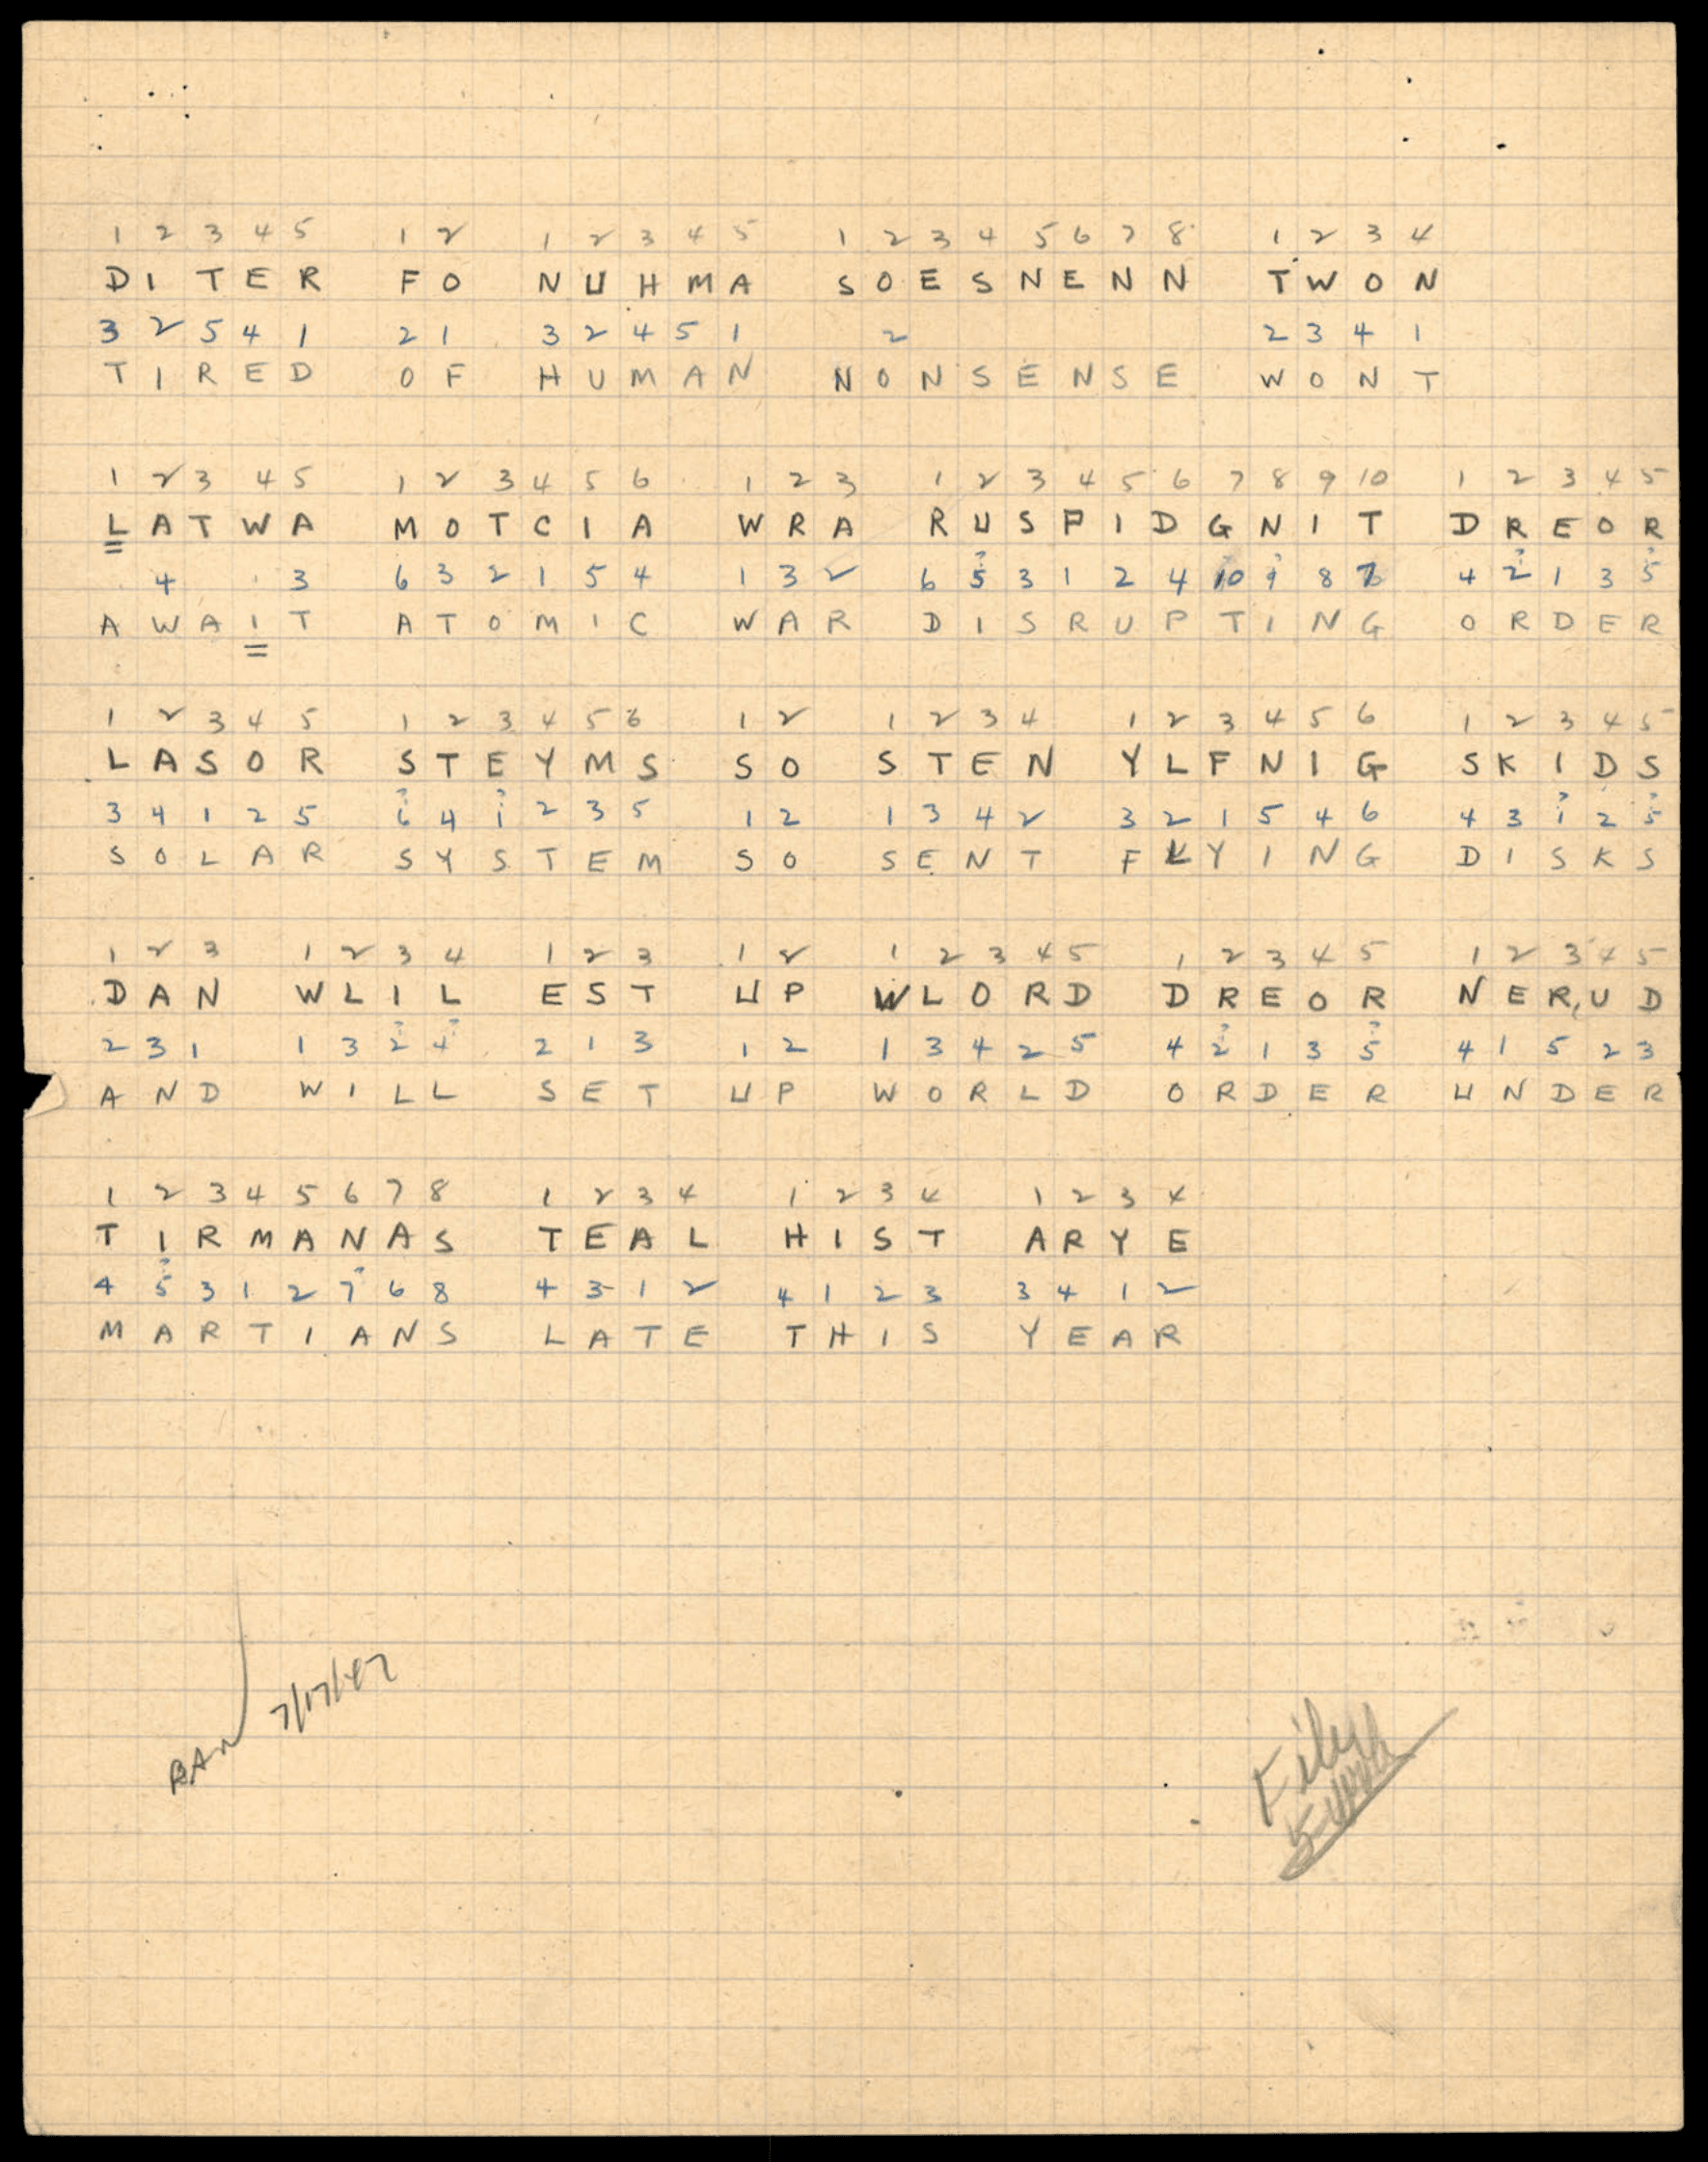 1 2 3 4 5 1 2 1 2 3 4 5 1 2 3 4 5 6 7 8 1 2 3 4
DITER FO NUHMA SOESNENN TWON
3 2 5 4 1 2 1 3 2 4 5 1 2 2 3 4 1
TIRED OF HUMAN NONSENSE WONT
1 2 3 4 5 1 2 3 4 5 6 1 2 3 1 2 3 4 5 6 7 8 9 10 1 2 3 4 5
LATWA MOTCIA WRA RUSPIDGNIT DREOR
4 3 6 3 2 1 5 4 1 3 2 6 5 3 1 2 4 10 9 8 7 4 2 1 3 5
AWAIT ATOMIC WAR DISRUPTING ORDER
1 2 3 4 5 1 2 3 4 5 6 1 2 1 2 3 4 1 2 3 4 5 6 1 2 3 4 5
LASOR STEYMS SO STEN YLFNIG SKIDS
3 4 1 2 5 6 4 1 2 3 5 1 2 1 3 4 2 3 2 1 5 4 6 4 3 1 2 5
SOLAR SYSTEM SO SENT FLYING DISKS
1 2 3 1 2 3 4 1 2 3 1 2 1 2 3 4 5 1 2 3 4 5 1 2 3 4 5
DAN WLIL EST UP WLORD DREOR NERUD
2 3 1 1 3 2 4 2 1 3 1 2 1 3 4 2 5 4 2 1 3 5 4 1 5 2 3
AND WILL SET UP WORLD ORDER UNDER
1 2 3 4 5 6 7 8 1 2 3 4 1 2 3 4 1 2 3 4
TIRMANAS TEAL HIST ARYE
4 5 3 1 2 7 6 8 4 3 1 2 4 1 2 3 3 4 1 2
MARTIANS LATE THIS YEAR
7/17/47
File